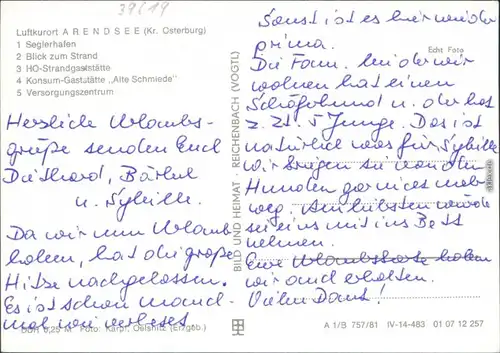 39619
Luftkurort ARENDSEE (Kr. Osterburg)
1 Seglerhafen
2 Blick zum Strand
3 HO-Strandgaststätte
4 Konsum-Gaststätte „Alte Schmiede"
5 Versorgungszentrum
Herzliche Urlaubs-
grüße senden Euch
Diethard, Bärbel
u. Sybille.
Da wir nun Urlaub
haben, hat die große
Hitze nachgelassen.
Es ist schon manch-
mal wie verhext
DDR 0,25 M Foto: Karpf, Oelsnitz (Erzgeb.)
BILD UND HEIMAT REICHENBACH (VOGTL)
Echt Foto
Sonst ist es hier wieder
prima.
Die Fam. bei der wir
wohnen hat einen
Schäferhund u. der hat
z. Zt. 5 Junge. Das ist
natürlich was für Sybille
wir kriegen sie von den
Hunden gar nicht mehr
weg. Am liebsten würde
sie eins mit ins Bett
nehmen.
Eure Urlaubskarte haben
wir auch erhalten.
Vielen Dank!
A 1/B 757/81 IV-14-483 01 07 12 257